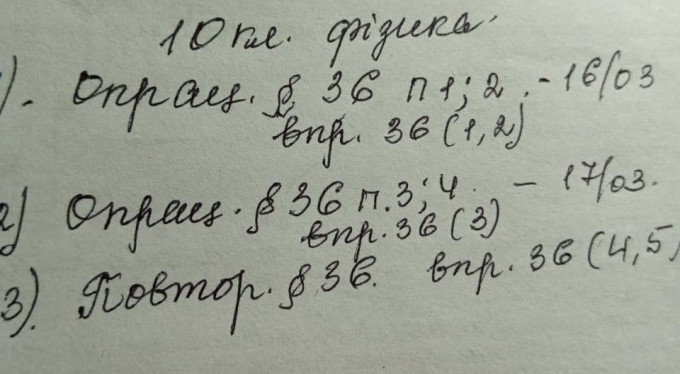 10 кл. фізика.
1). Опрац. § 36 п 1; 2. - 16/03
впр. 36 (1, 2)
2) Опрац. § 36 п. 3; 4. - 17/03.
впр. 36 (3)
3). Повтор. § 36. впр. 36 (4, 5)